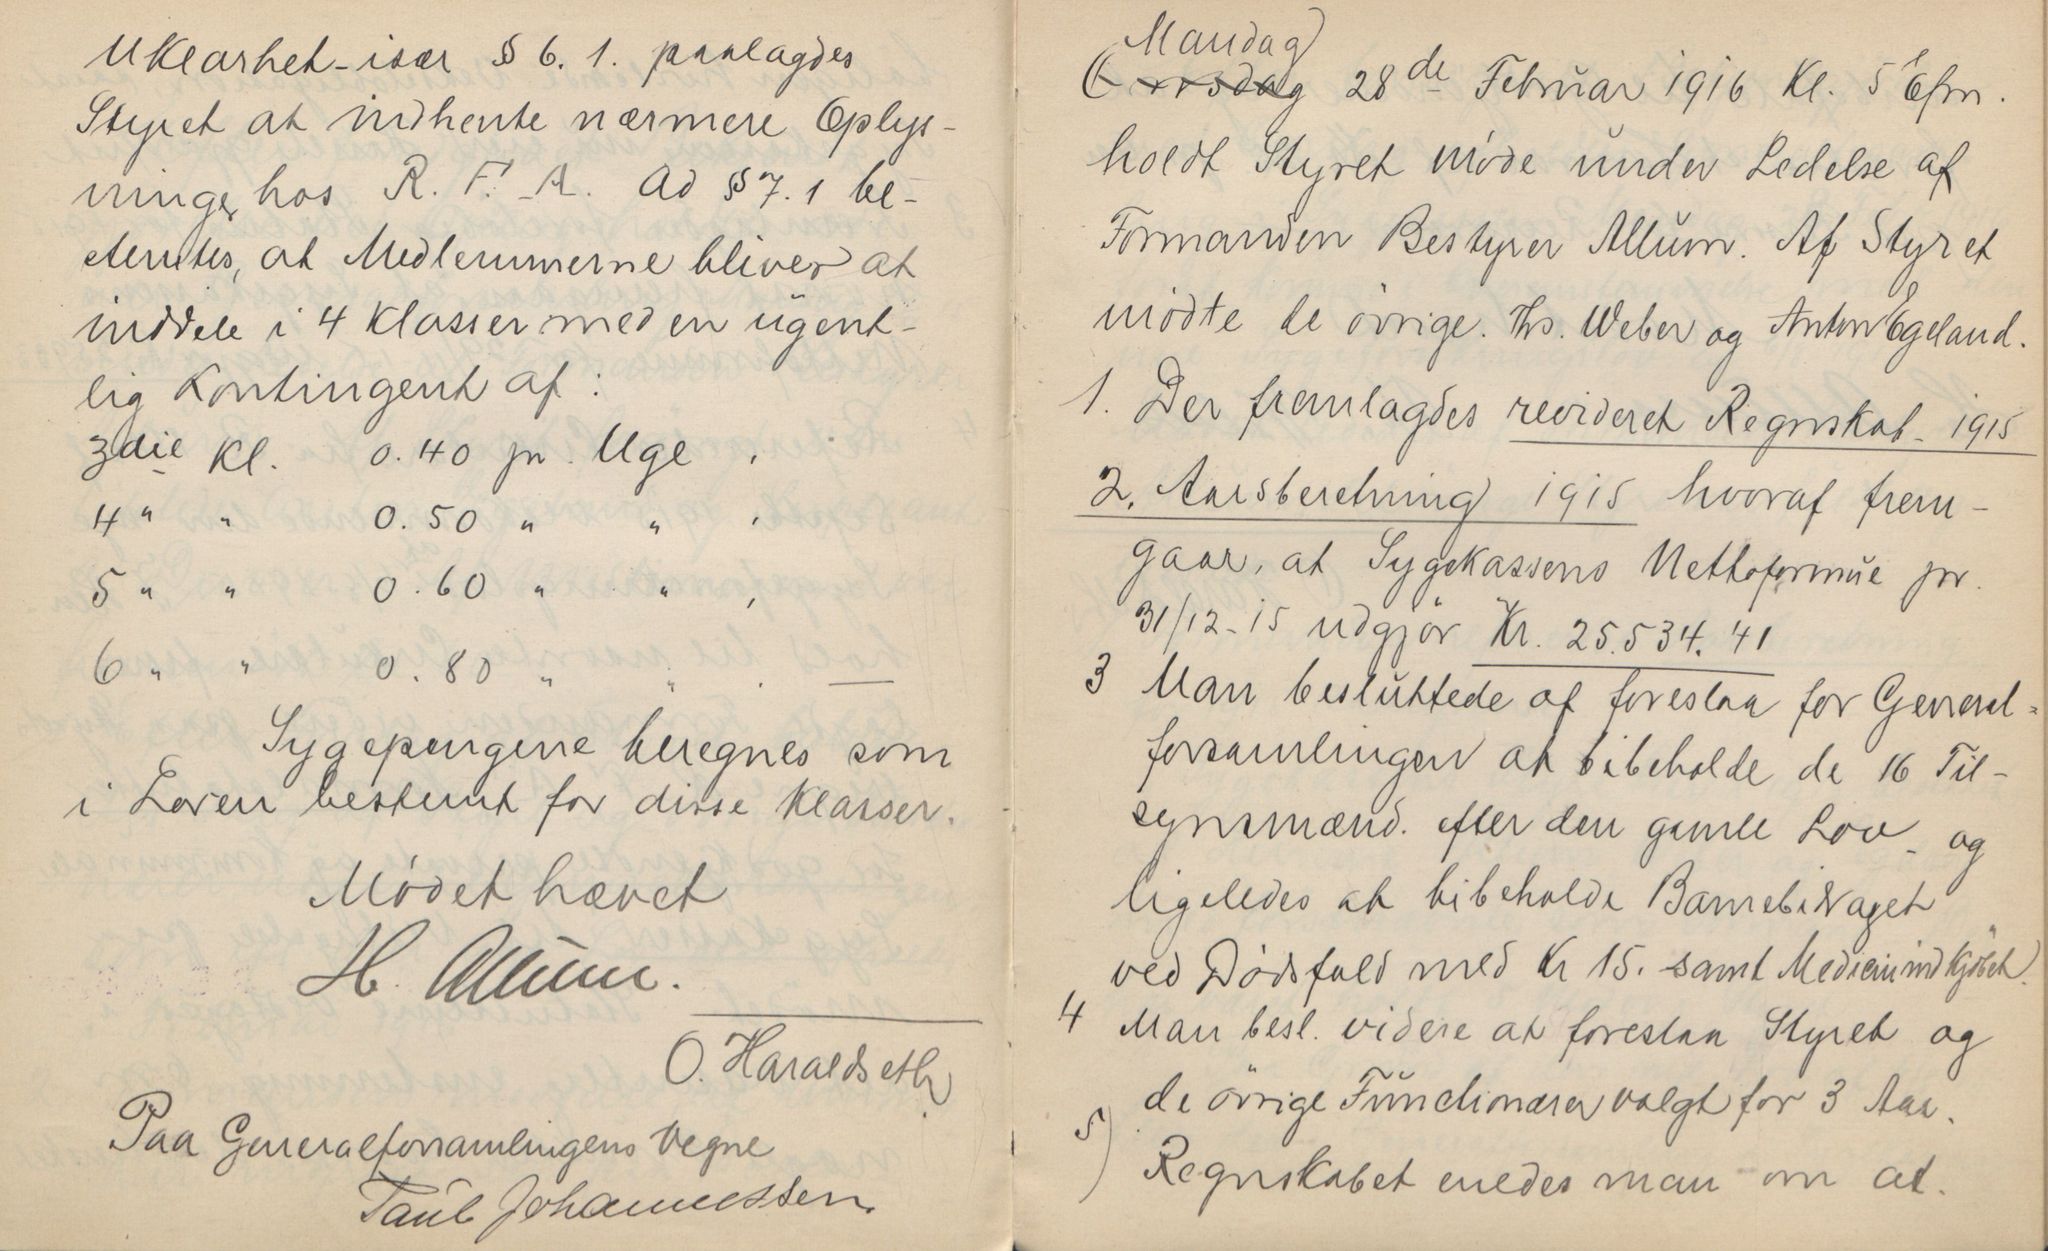 Uklarhet - især § 6. 1. paalagdes
Styret at indhente nærmere Oplys-
ninger hos R. F. A. Ad § 7. 1 be-
stemtes, at Medlemmerne bliver at
inddele i 4 Klasser med en ugent-
lig Kontingent af:
3die Kl. 0.40 pr. Uge.
4 " " 0.50 " " .
5 " " 0.60 " " .
6 " " 0.80 " " . —
Sygepengene beregnes som
i Loven bestemt for disse Klasser.
Mødet hævet
H. Allum.
O. Haraldseth
Paa Generalforsamlingens Vegne
Paul Johannessen.
Mandag
28de Februar 1916 Kl. 5 Efm.
holdt Styret møde under Ledelse af
Formanden Bestyrer Allum. Af Styret
mødte de øvrige. Ths. Weber og Anton Egeland.
1. Der fremlagdes revideret Regnskab - 1915
2. Aarsberetning 1915 hvoraf frem-
gaar, at Sygekassens Nettoformue pr.
31/12 - 15 udgjør Kr. 25.534.41
3 Man besluttede at foreslaa for General-
forsamlingen at bibeholde de 16 Til-
synsmænd. efter den gamle Lov - og
ligeledes at bibeholde Barnebidraget
ved Dødsfald med Kr 15. samt Medicinindkjøbet.
4 Man besl. videre at foreslaa Styret og
de øvrige Functionærer valgt for 3 Aar.
5) Regnskabet enedes man om at.